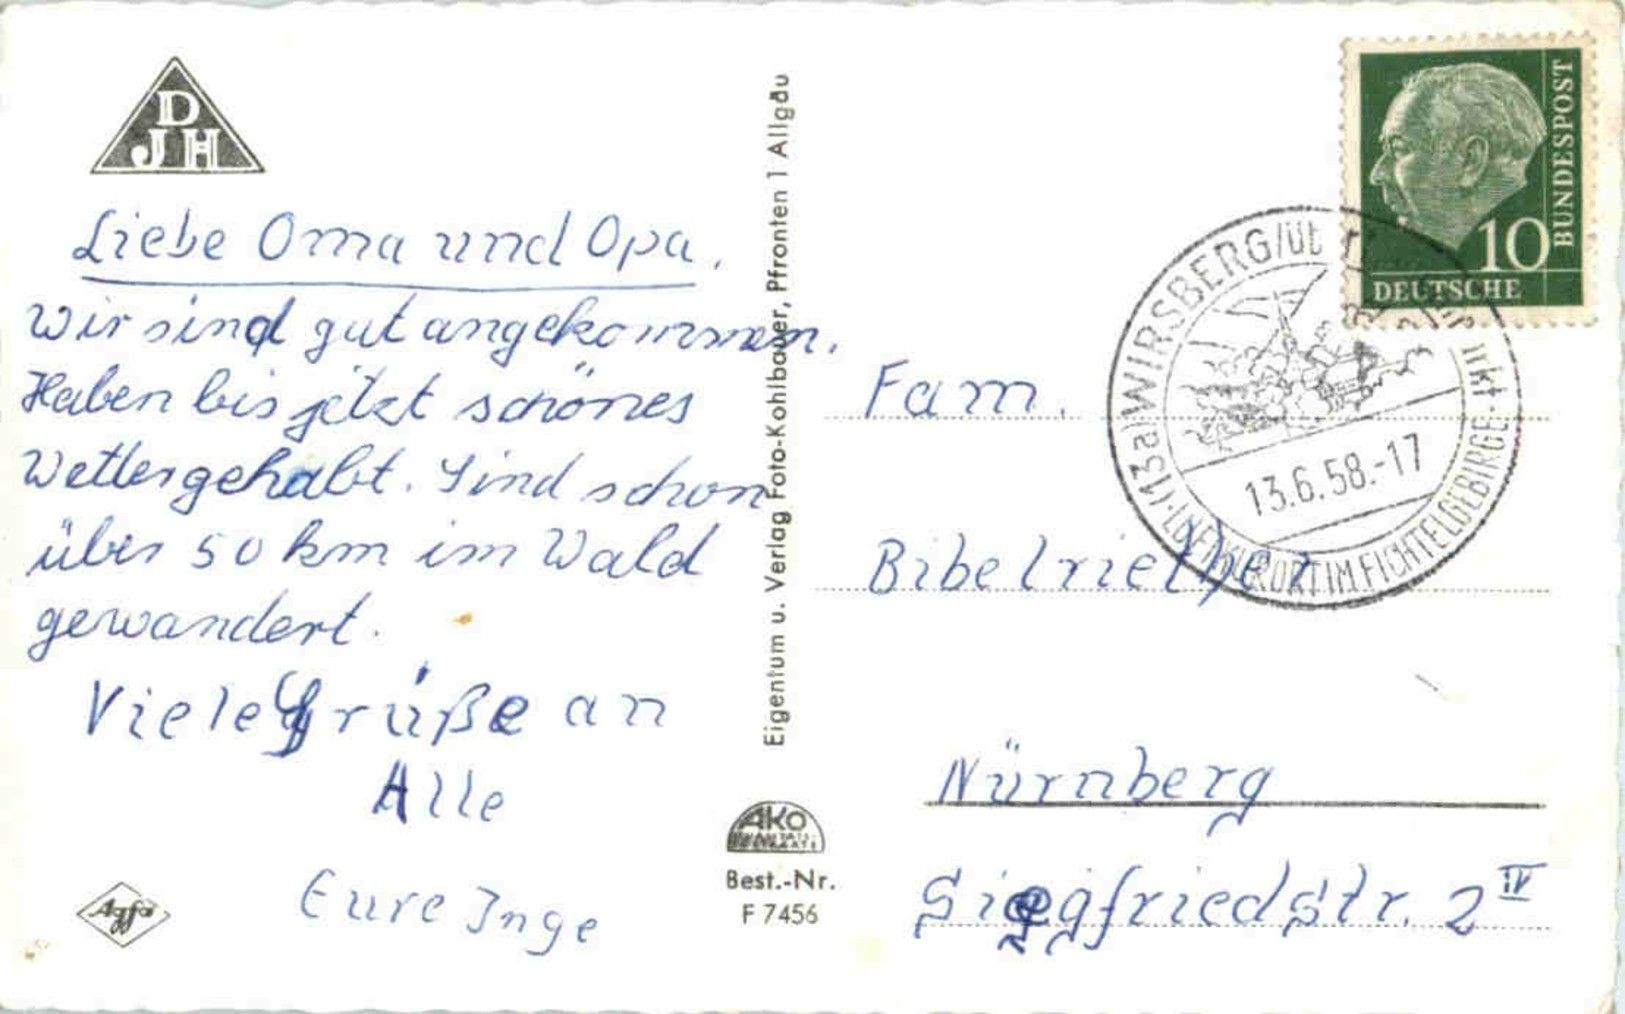 DJH
Liebe Oma und Opa,
Wir sind gut angekommen.
Haben bis jetzt schönes
Wetter gehabt. Sind schon
über 50 km im Wald
gewandert.
Viele Grüße an
Alle
Eure Inge
Agfa
Eigentum u. Verlag Foto-Kohlbauer, Pfronten 1 Allgäu
AKO
Best.-Nr.
F 7456
10
BUNDESPOST
DEUTSCHE
(13a) WIRSBERG/ÜB
LUFTKURORT IM FICHTELGEBIRGE
13.6.58.-17
Fam.
Bibelriether
Nürnberg
Siegfriedstr. 2 IV